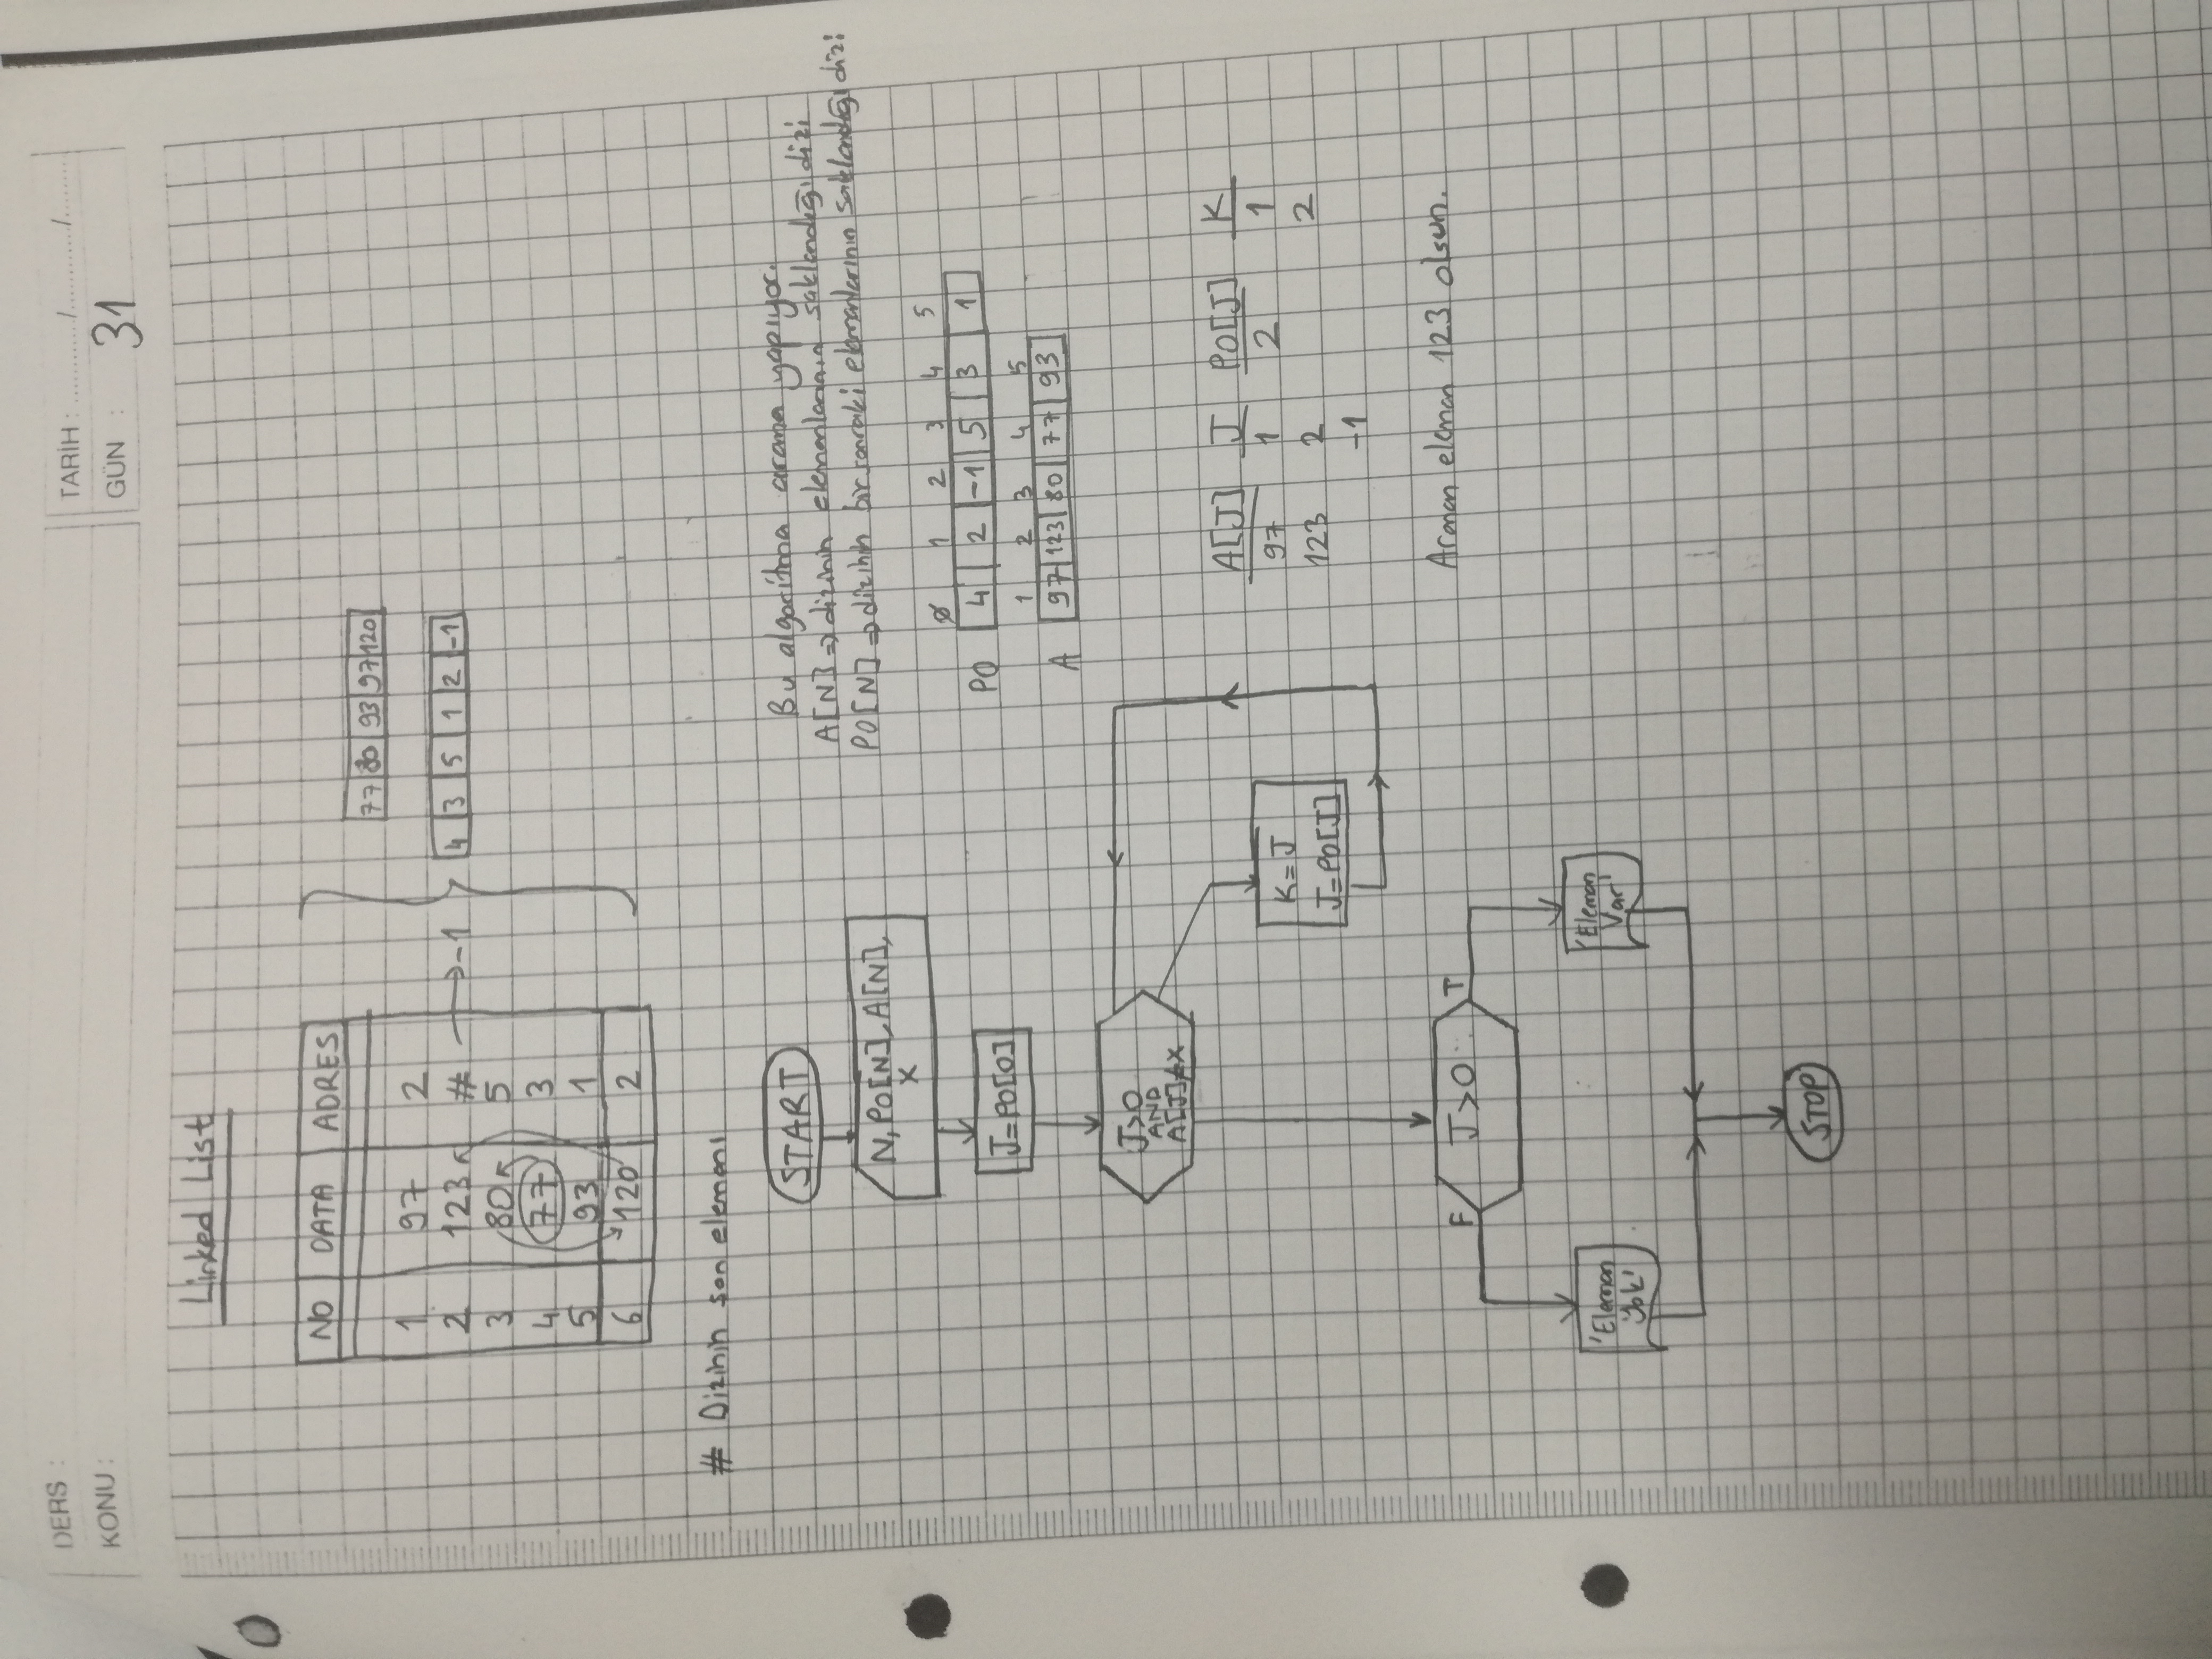 DERS :
KONU :
TARİH : ............/............/.........
GÜN : 31
Linked List
NO DATA ADRES
1 97 2
2 123 # → -1
3 80 5
4 77 3
5 93 1
6 120 2
77 80 93 97 120
4 3 5 1 2 -1
# Dizinin son elemanı
START
N, PO[N], A[N],
X
J=PO[0]
J>0
AND
A[J]≠X
K=J
J=PO[J]
F J>0 T
'Eleman
Yok'
'Eleman
Var'
STOP
Bu algoritma arama yapıyor.
A[N] => dizinin elemanlarının saklandığı dizi
PO[N] => dizinin bir sonraki elemanlarının saklandığı dizi
0 1 2 3 4 5
PO 4 2 -1 5 3 1
1 2 3 4 5
A 97 123 80 77 93
A[J] J PO[J] K
97 1 2 1
123 2 2
-1
Aranan eleman 123 olsun.